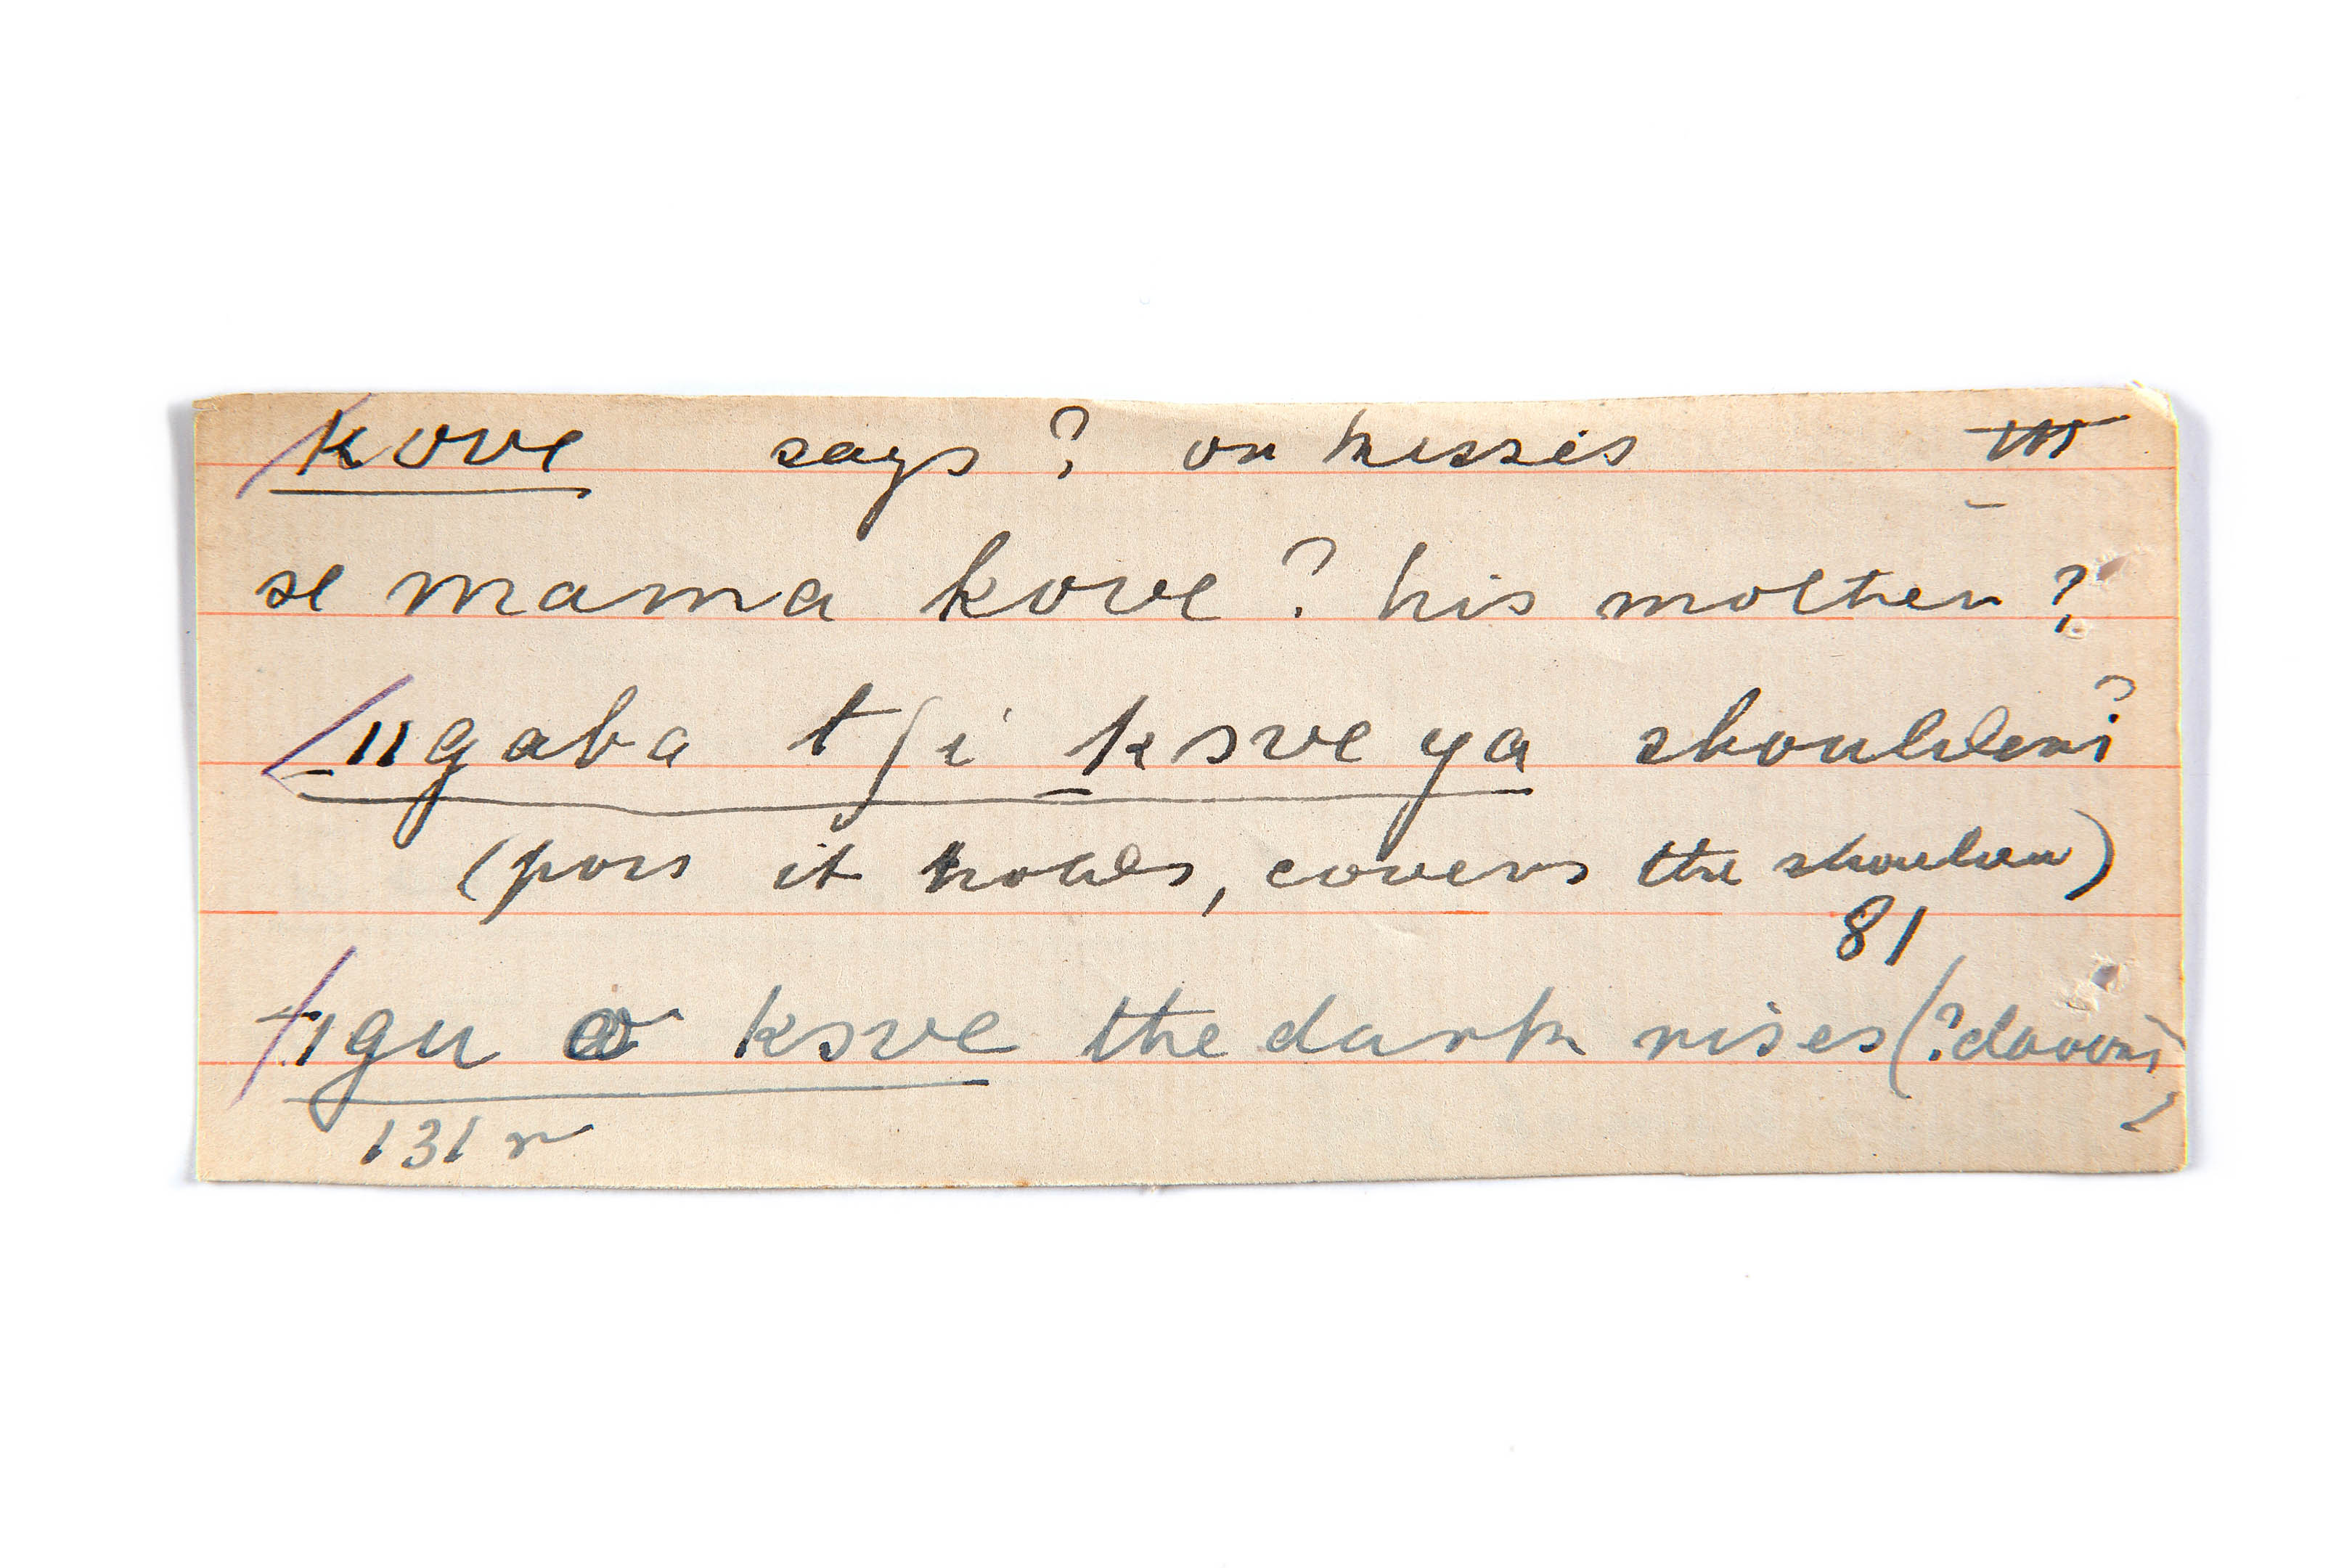 kove says ? or kisses
se mama kove ? his mother ?
ngaba tʃi kɔve ya shoulders ?
(poss it holds, covers the shoulder)
81
tigu kɔve the dark rises (?
131 r